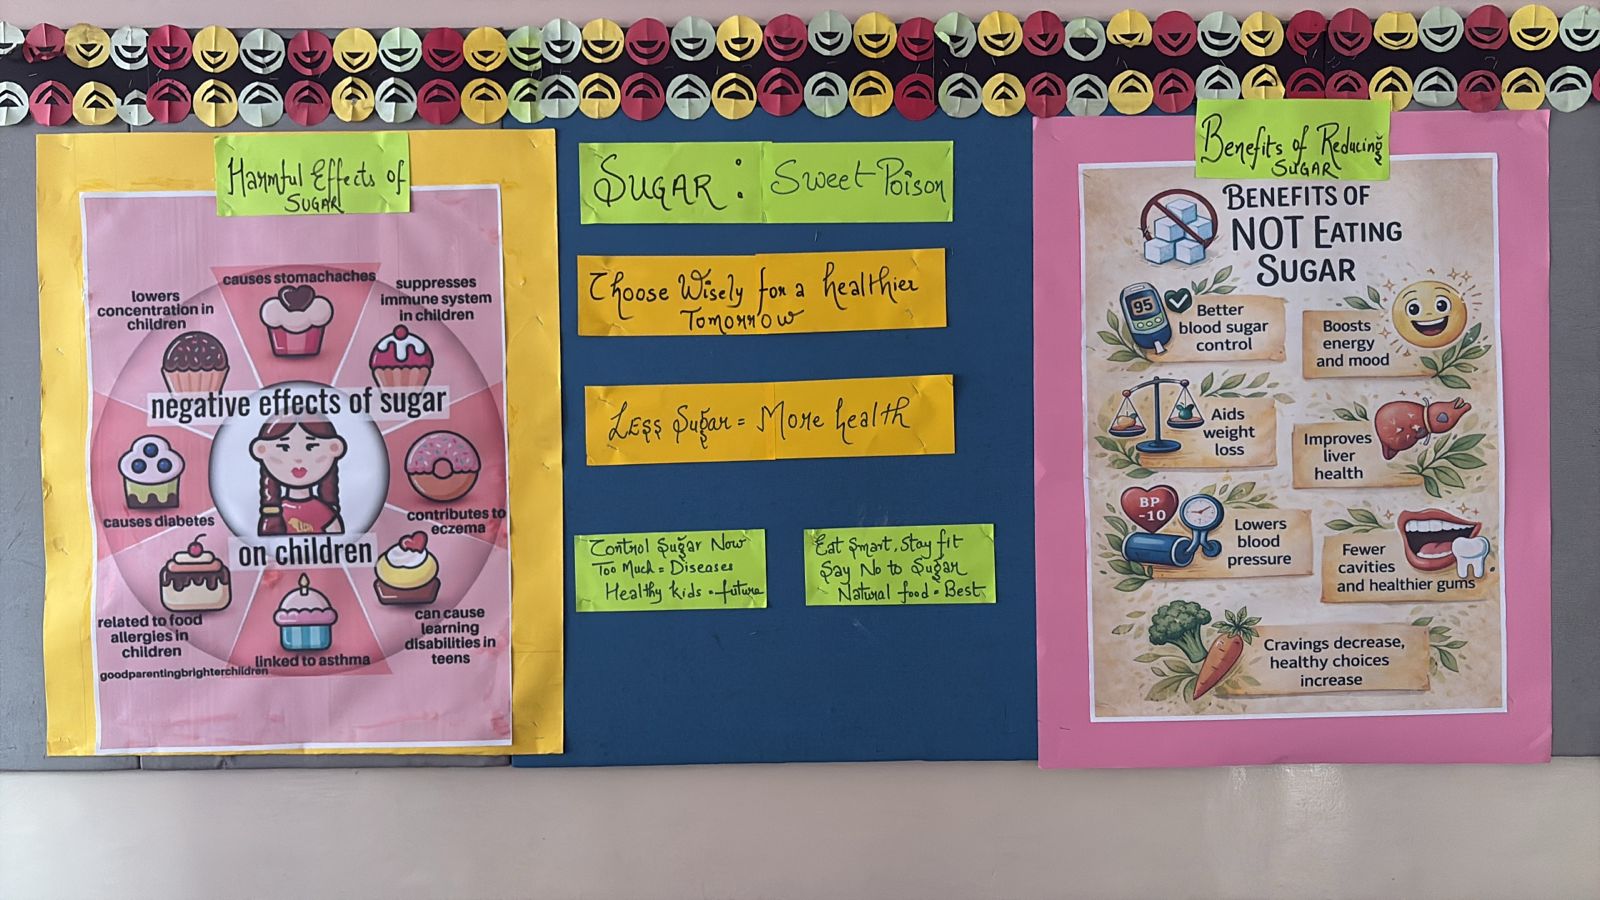 Harmful Effects of
SUGAR
causes stomachaches
suppresses
immune system
in children
lowers
concentration in
children
negative effects of sugar
on children
causes diabetes
contributes to
eczema
related to food
allergies in
children
can cause
learning
disabilities in
teens
linked to asthma
goodparentingbrighterchildren
SUGAR : Sweet Poison
Choose Wisely for a healthier
Tomorrow
Less Sugar = More health
Control Sugar Now
Too Much = Diseases
Healthy kids = future
Eat Smart, Stay fit
Say No to Sugar
Natural food = Best
Benefits of Reducing
SUGAR
BENEFITS OF
NOT EATING
SUGAR
95
Better
blood sugar
control
Boosts
energy
and mood
Aids
weight
loss
Improves
liver
health
BP
-10
Lowers
blood
pressure
Fewer
cavities
and healthier gums
Cravings decrease,
healthy choices
increase